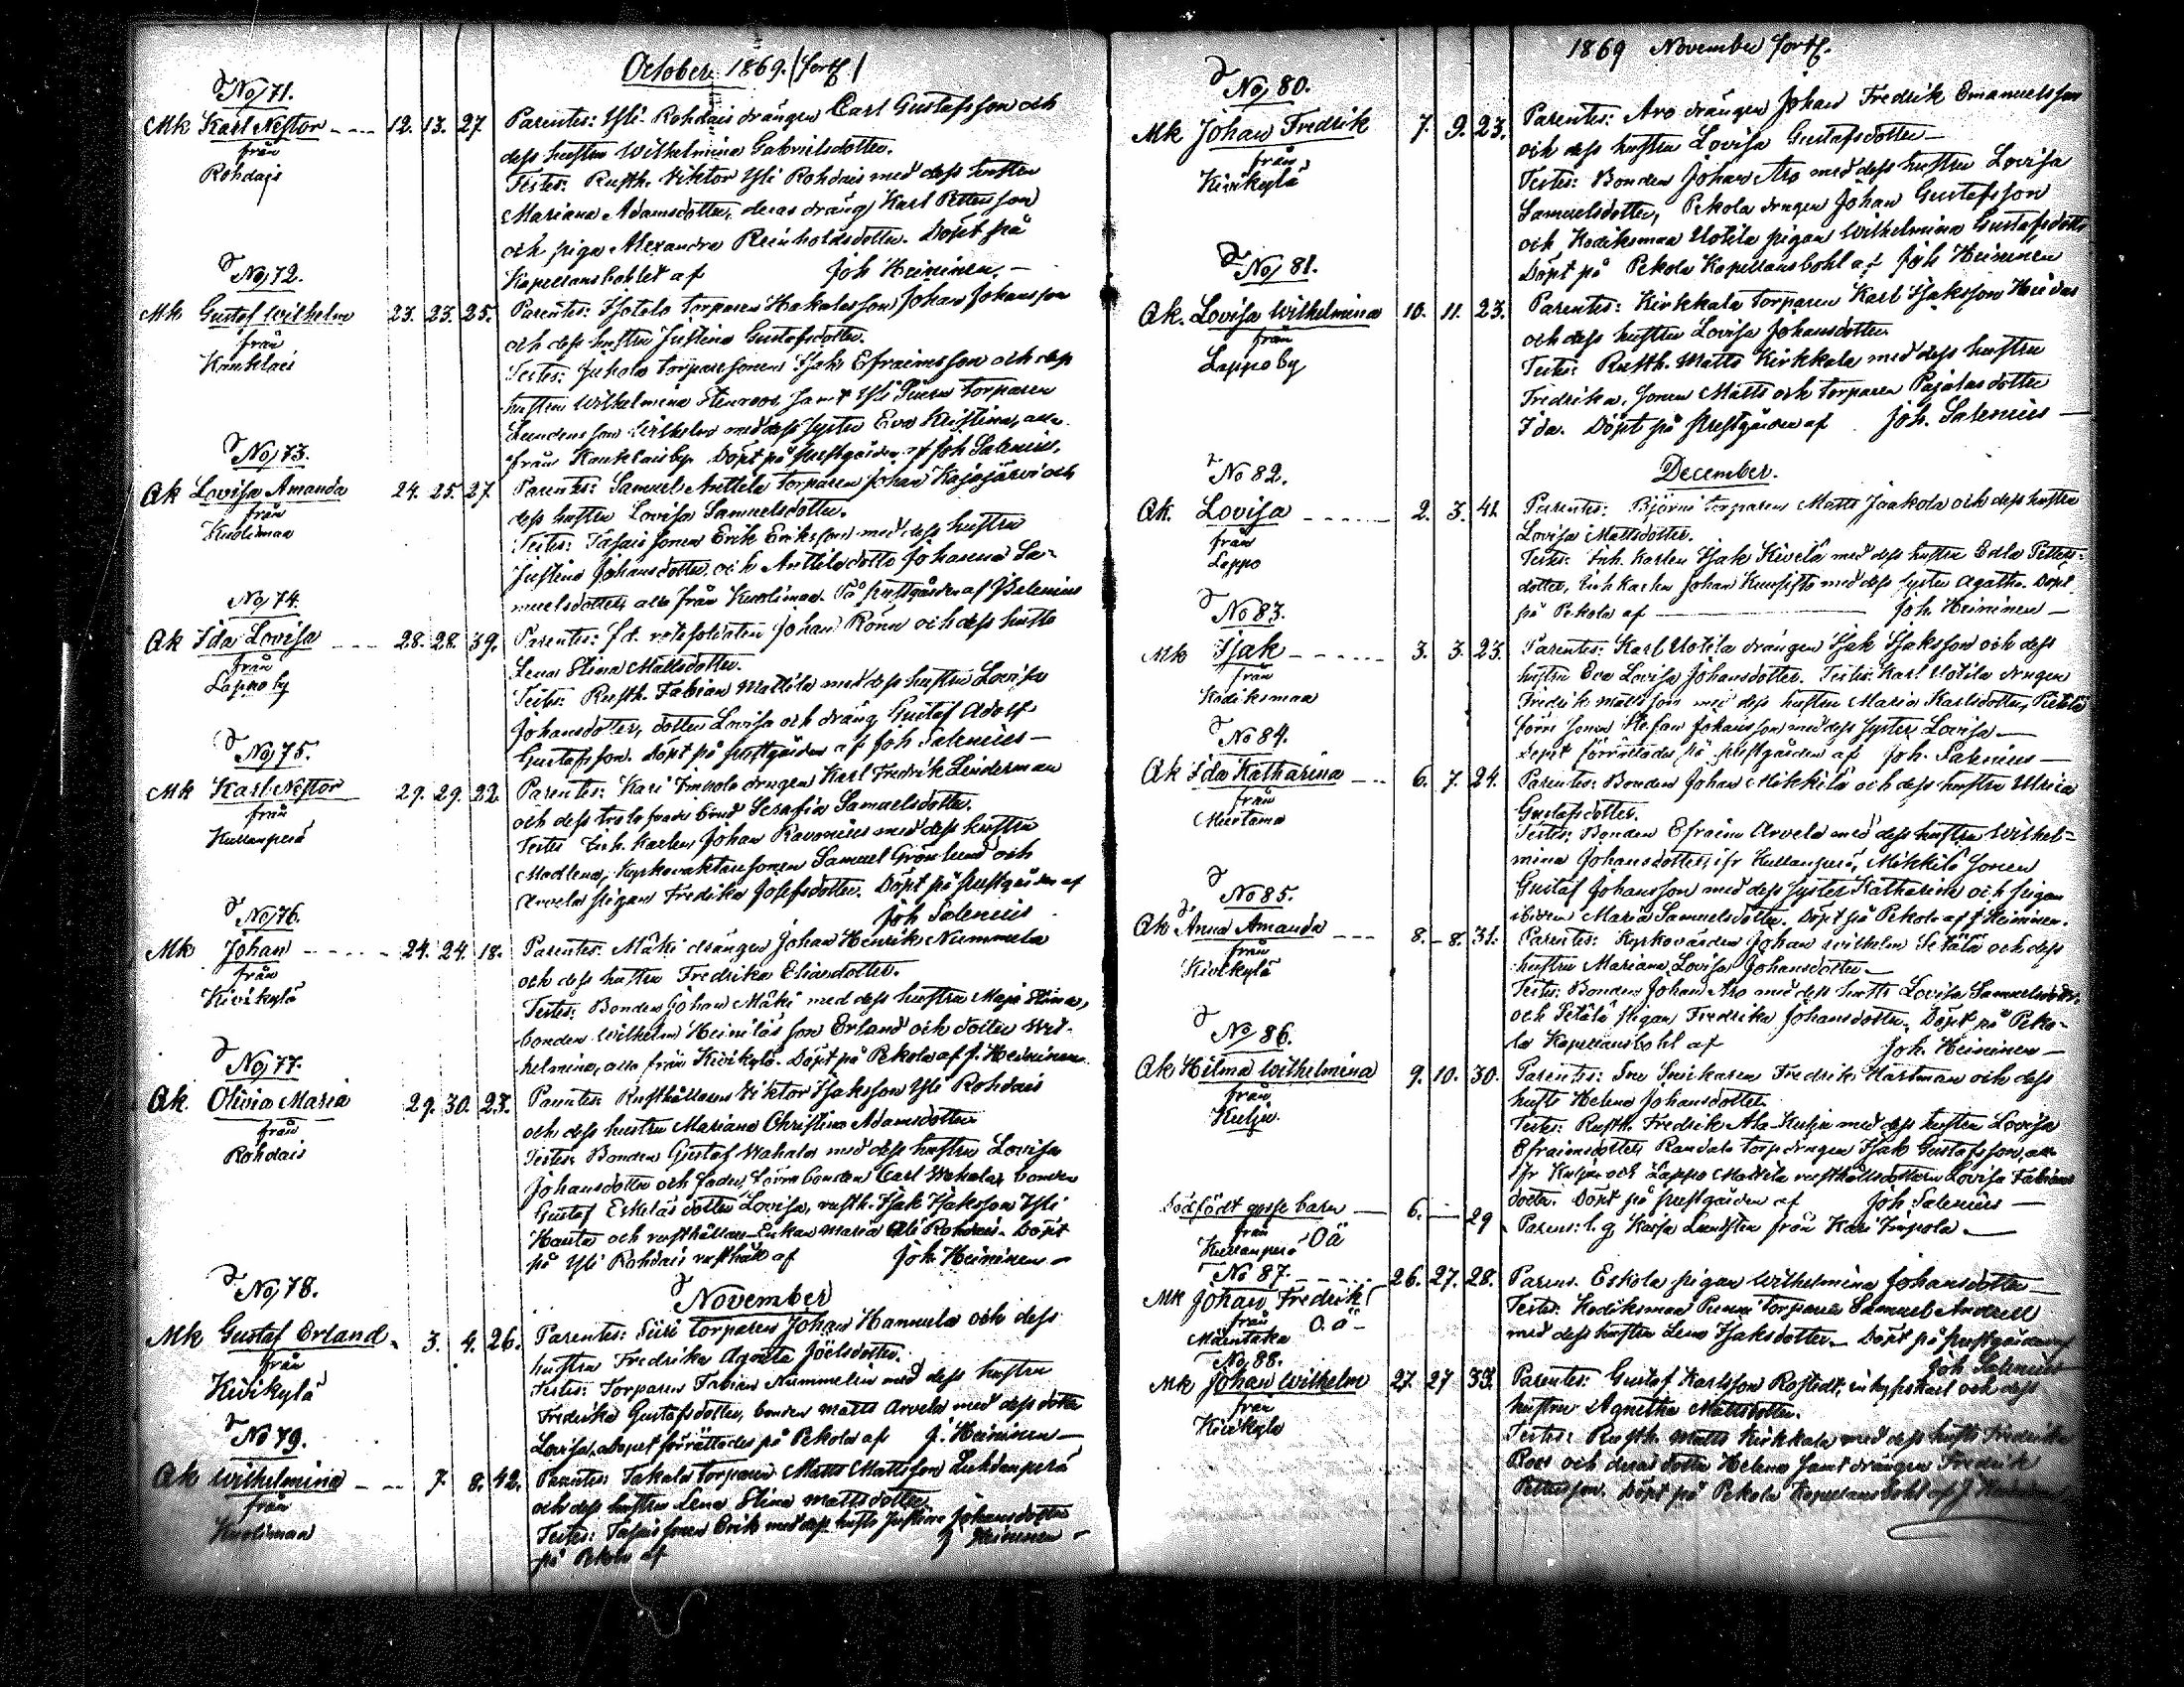 October 1869. (forts)
No 71.
Mk Karl Nestor 12. 13. 27
från
Rohdais
Parentes: Yli Rohdais drängen Carl Gustafsson och
dess hustru Wilhelmina Gabrielsdotter.
Testes: Rusth. Viktor Yli Rohdais med dess hustru
Mariana Adamsdotter, deras dräng Karl Pettersson
och piga Alexandra Reinholdsdotter. Döpt på
Kapellansbohlet af Joh Heininen. —
No 72.
Mk Gustaf Wilhelm 23. 23. 25.
från
Kauklais
Parentes: torparen Johan Johansson
och dess hustru Justina Gustafsdotter.
Testes: Juhola torparesonen Isak Efraimsson och dess
hustru Wilhelmina Stenroos, samt Yli torparen
Wilhelm med dess syster Eva Kristina, alla
från Kauklais by. Döpt på prestgården af Joh Salenius.
No 73.
Ak Lovisa Amanda 24. 25. 27
från
Kuolimaa
Parentes: Samuel Anttila torparen Johan Kajajärvi och
dess hustru Lovisa Samuelsdotter.
Testes: sonen Erik Eriksson med dess hustru
Justina Johansdotter, och Anttila dotter Johanna Sa-
muelsdotter, alla från Kuolimaa. På prestgården af J Salenius
No 74.
Ak Ida Lovisa 28. 28. 39.
från
Lappo by
Parentes: f.d. rotesoldaten Johan Rönn och dess hustru
Lena Stina Mattsdotter.
Testes: Rusth. Fabian Mattila med dess hustru Lovisa
Johansdotter, dotter Lovisa och dräng Gustaf Adolf
Gustafsson. Döpt på prestgården af Joh Salenius —
No 75.
Mk Karl Nestor 29. 29. 22
från
Kullanperä
Parentes: Kari Impola drängen Karl Fredrik Linderman
och dess trolofvade brud Serafia Samuelsdotter.
Testes Inh. karlen Johan Ravonius med dess hustru
Madlena, Kyrkovaktaresonen Samuel Grönlund och
Arvela pigan Fredrika Josefsdotter. Döpt på prestgården af
Joh Salenius
No 76.
Mk Johan 24. 24. 18.
från
Kivikylä
Parentes: Mäki drängen Johan Henrik Nummela
och dess hustru Fredrika Eliasdotter.
Testes: Bonden Johan Mäki med dess hustru Maja Stina,
bonden Wilhelm Heinilä son Erland och dotter Wil-
helmina, alla från Kivikylä. Döpt på Pekola af J. Heininen
No 77.
Ak. Olivia Maria 29. 30. 23.
från
Rohdais
Parentes: Rusthållaren Viktor Isaksson Yli Rohdais
och dess hustru Mariana Christina Adamsdotter
Testes: Bonden Gustaf Wahala med dess hustru Lovisa
Johansdotter och fader, förra bonden Carl Wahala, bonden
Gustaf Eskelä dotter Lovisa, rusth. Isak Isaksson Yli
Hanta och rusthållare Enkan Maria Ali Rohdais. Döpt
på Yli Rohdais rusthåll af Joh Heininen —
November
No 78.
Mk Gustaf Erland 3. 4. 26.
från
Kivikylä
Parentes: Siiri torparen Johan Hannula och dess
hustru Fredrika Agata Joelsdotter.
Testes: Torparen Fabian Nummelin med dess hustru
Fredrika Gustafsdotter, bonden Matts Arvela med dess dotter
Lovisa. Dopet förrättades på Pekola af J. Heininen —
No 79.
Ak Wilhelmina 7. 8. 42.
från
Kuolimaa
Parentes: Takala torparen Matts Mattsson Luhdanperä
och dess hustru Lena Stina Mattsdotter.
Testes: sonen Erik med dess hustru Justina Johansdotter
på Pekola af J Heininen —
1869 November forts.
No 80.
Mk Johan Fredrik 7. 9. 23.
från
Kivikylä
Parentes: Aro drängen Johan Fredrik Emanuelsson
och dess hustru Lovisa Gustafsdotter —
Testes: Bonden Johan Aro med dess hustru Lovisa
Samuelsdotter, Pekola drengen Johan Gustafsson
och Kodiksmaa Uotila pigan Wilhelmina Gustafsdotter
Döpt på Pekola Kapellansbohl af Joh Heininen
No 81.
Ak. Lovisa Wilhelmina 10. 11. 23.
från
Lappo by
Parentes: Kirkkala torparen Karl Isaksson
och dess hustru Lovisa Johansdotter.
Testes: Rusth. Matts Kirkkala med dess hustru
Fredrika, sonen Matts och torparen Pajalas dotter
Ida. Döpt på prestgården af Joh. Salenius —
December.
No 82.
Ak. Lovisa 2. 3. 41.
från
Lappo
Parentes: Björni torparen Matts Jaakola och dess hustru
Lovisa Mattsdotter.
Testes: Inh. karlen Isak Kivelä med dess hustru Edla Petters-
dotter, Inh karlen Johan Kuusisto med dess syster Agatha. Döpt
på Pekola af Joh. Heininen —
No 83.
Mk Isak 3. 3. 23.
från
Kodiksmaa
Parentes: Karl Uotila drängen Isak Isaksson och dess
hustru Eva Lovisa Johansdotter. Testes: Karl Uotila drengen
Fredrik Mattsson med dess hustru Maria Karlsdotter, Pietilä
förre sonen Stefan Johansson med dess syster Lovisa —
Dopet förrättades på prestgården af Joh. Salenius —
No 84.
Ak Ida Katharina 6. 7. 24.
från
Parentes: Bonden Johan Mikkilä och dess hustru Ulrica
Gustafsdotter.
Testes: Bonden Efraim Arvela med dess hustru Wilhel=
mina Johansdotter, ifr Kullanperä, Mikkilä sonen
Gustaf Johansson med dess syster Katharina och pigan
Maria Samuelsdotter. Döpt på Pekola af J Heininen.
No 85.
Ak Anna Amanda 8. 8. 31.
från
Kivikylä
Parentes: Kyrkovärden Johan Wilhelm Setälä och dess
hustru Mariana Lovisa Johansdotter —
Testes: Bonden Johan Aro med dess hustru Lovisa Samuelsdotter,
och Setälä pigan Fredrika Johansdotter. Döpt på Peko-
la Kapellansbohl af Joh. Heininen —
No 86.
Ak Hilma Wilhelmina 9. 10. 30.
från
Kulju
Parentes: Fredrik Hartman och dess
hustru Helena Johansdotter.
Testes: Rusth. Fredrik Ala-Kulju med dess hustru Lovisa
Efraimsdotter, Randala torp drengen Isak Gustafsson, alla
ifr Kulju och Lappo Mattila rusthållsdottern Lovisa Fabians
dotter. Döpt på prestgården af Joh. Salenius —
Dödfödt gosse barn 6. — 29
från
Kullanperä Oä
Parens: l. q. Kaisa Lundsten från Kari Impola —
No 87.
Mk Johan Fredrik 26. 27. 28.
från O. ä —
Parens. Eskola pigan Wilhelmina Johansdotter —
Testes: Kodiksmaa torparen Samuel Andrell
med dess hustru Lena Isaksdotter. — Döpt på prestgården af
Joh Salenius
No 88.
Mk Johan Wilhelm 27. 27 33.
från
Kivikylä
Parentes: Gustaf Karlsson Rostedt, och dess
hustru Agnetha Mattsdotter.
Testes: Rusth. Matts Kirkkala med dess hustru Fredrika
Roos och deras dotter Helena samt drängen Fredrik
Pettersson. Döpt på Pekola Kapellansbohl af J.